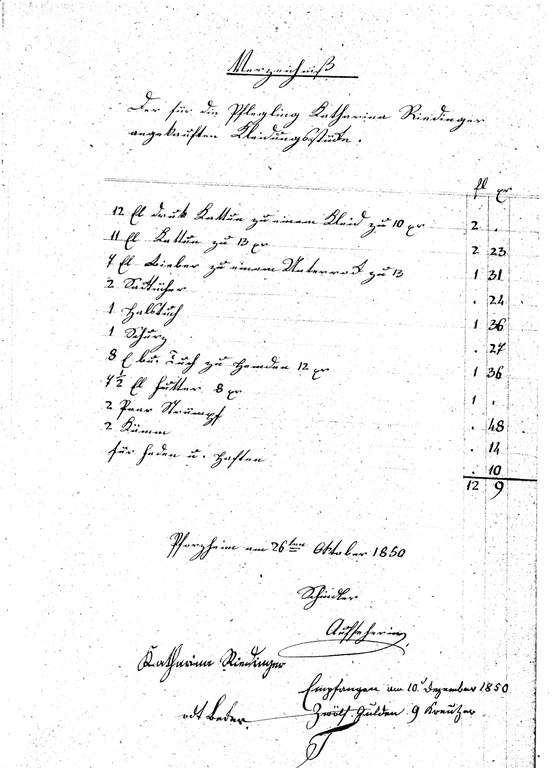 Verzeichniß
Der für die Pflegling Katharina Riedinger
angekauften Kleidungsstücke.
fl xr
12 El druk Kattun zu einem Kleid zu 10 xr 2 .
11 El Kattun zu 13 xr 2 23
7 El Bieber zu einem Unterrock zu 13 1 31
2 Sacktücher . 24
1 Halstuch 1 36
1 Schurz . 27
8 E Tuch zu Hemden 12 xr 1 36
7 1/2 El Futter 8 xr 1 .
2 Paar Strümpf . 48
2 Kämm . 14
für Faden u. Haften . 10
12 9
Pforzheim am 26ten Oktober 1850
Schindler
Aufseherin
Katharina Riedinger
Empfangen am 10. Dezember 1850
Zwölf Gulden 9 Kreutzer